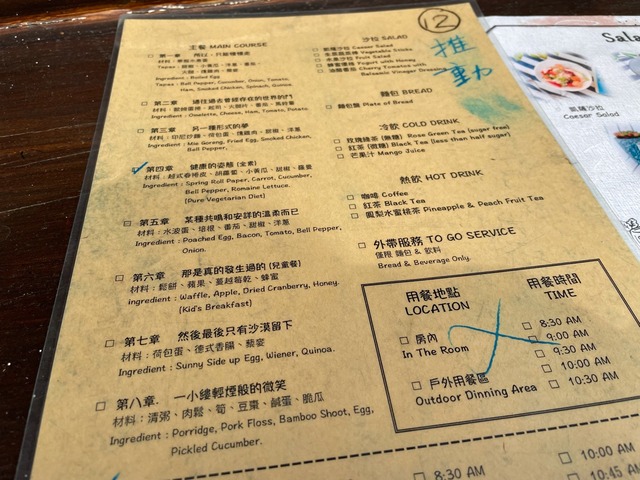 主餐 MAIN COURSE
第一章
Ingredient : Boiled Egg
Tapas : Bell Pepper, Cucumber, Onion, Tomato,
Ham, Smoked Chicken, Spinach, Quinoa.
第二章 過往過去曾經存在的世界的門
Ingredient : Omelette, Cheese, Ham, Tomato, Potato.
第三章 另一種形式的夢
材料 : 印尼炒麵、荷包蛋、燻雞肉、甜椒、洋蔥
Ingredient : Mie Goreng, Fried Egg, Smoked Chicken,
Bell Pepper.
第四章 健康的姿態 (全素)
材料 : 越式春捲皮、胡蘿蔔、小黃瓜、甜椒、蘿蔓
Ingredient : Spring Roll Paper, Carrot, Cucumber,
Bell Pepper, Romaine Lettuce.
(Pure Vegetarian Diet)
第五章 某種共鳴和安詳的溫柔而已
材料 : 水波蛋、培根、番茄、甜椒、洋蔥
Ingredient : Poached Egg, Bacon, Tomato, Bell Pepper,
Onion.
第六章 那是真的發生過的 (兒童餐)
材料 : 鬆餅、蘋果、蔓越莓乾、蜂蜜
ingredient : Waffle, Apple, Dried Cranberry, Honey.
(Kid's Breakfast)
第七章 然後最後只有沙漠留下
材料 : 荷包蛋、德式香腸、藜麥
Ingredient : Sunny Side up Egg, Wiener, Quinoa.
第八章. 一小縷輕煙般的微笑
材料 : 清粥、肉鬆、筍、豆棗、鹹蛋、脆瓜
Ingredient : Porridge, Pork Floss, Bamboo Shoot, Egg,
Pickled Cucumber.
12
推動
沙拉 SALAD
凱薩沙拉 Caesar Salad
Vegetable Sticks
水果沙拉 Fruit Salad
蜂蜜優格 Yogurt with Honey
Cherry Tomatoes with
Balsamic Vinegar Dressing
麵包 BREAD
麵包盤 Plate of Bread
冷飲 COLD DRINK
玫瑰綠茶 (無糖) Rose Green Tea (sugar free)
紅茶 (微糖) Black Tea (less than half sugar)
芒果汁 Mango Juice
熱飲 HOT DRINK
咖啡 Coffee
紅茶 Black Tea
鳳梨水蜜桃茶 Pineapple & Peach Fruit Tea
外帶服務 TO GO SERVICE
僅限 麵包 & 飲料
Bread & Beverage Only.
用餐地點
LOCATION
房內
In The Room
戶外用餐區
Outdoor Dinning Area
用餐時間
TIME
8:30 AM
9:00 AM
9:30 AM
10:00 AM
10:30 AM
8:30 AM
10:00 AM
10:45 AM
Sala
凱薩沙拉
Caesar Salad